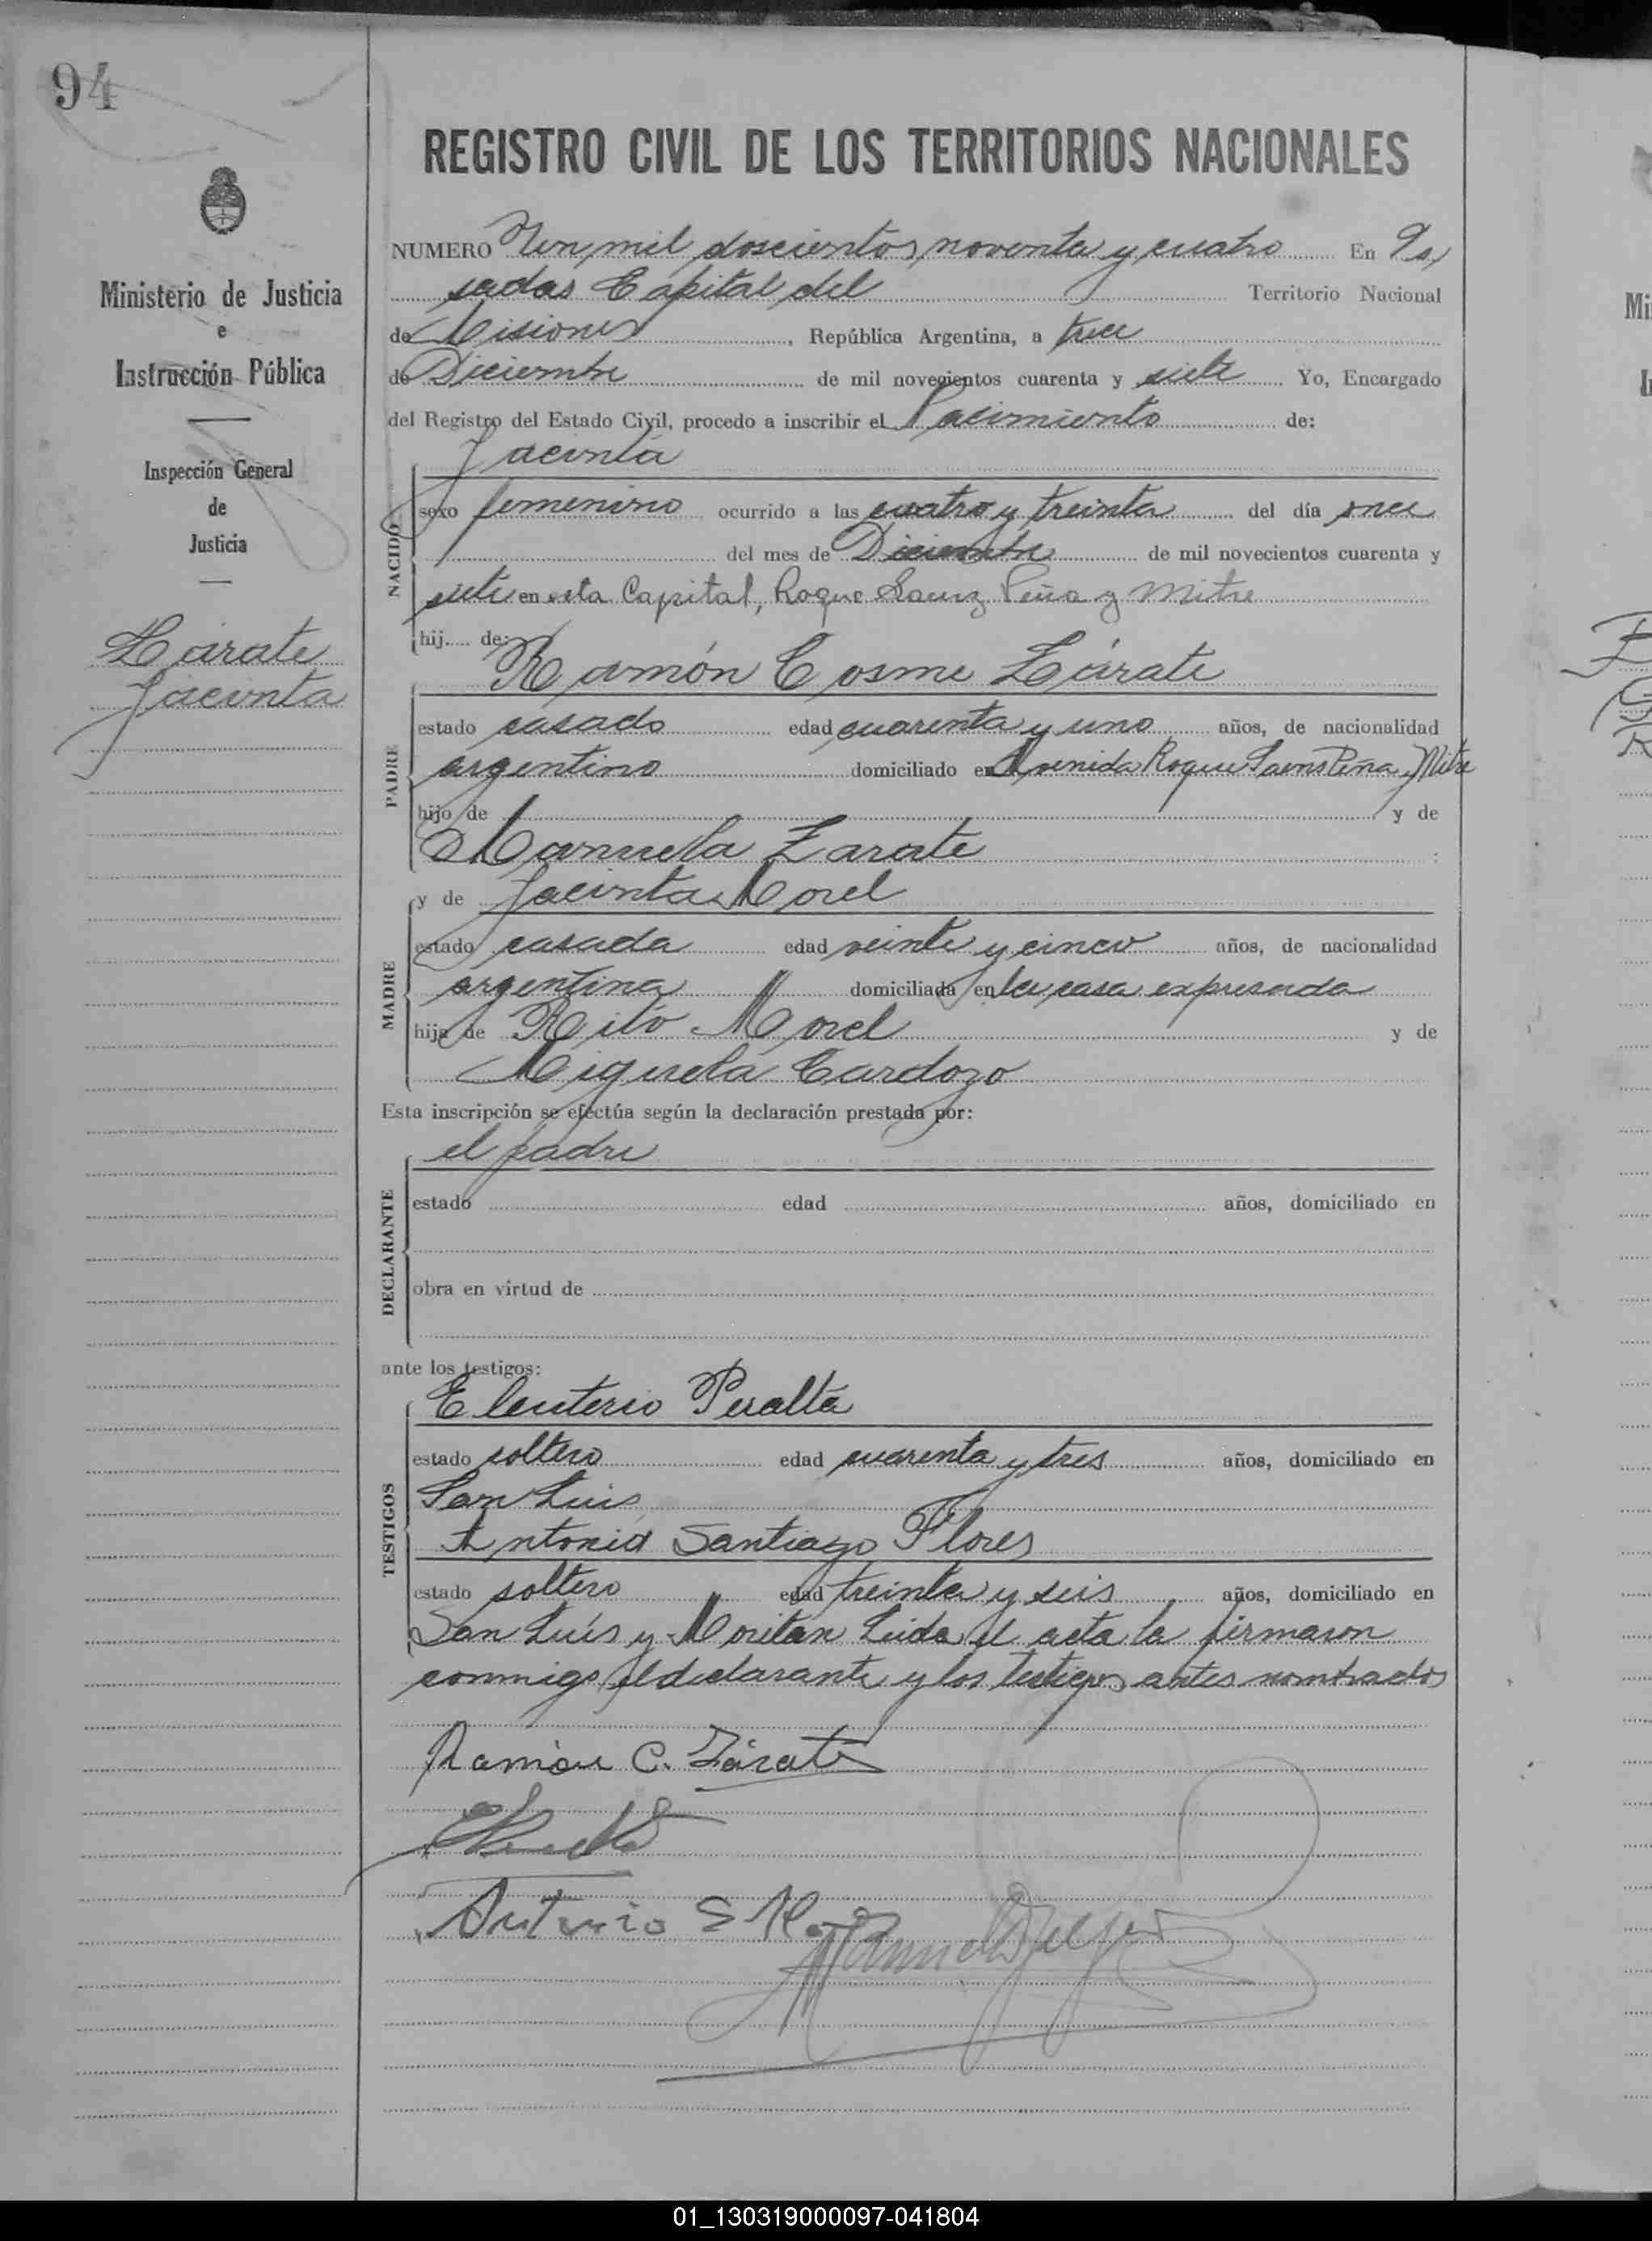 94
REGISTRO CIVIL DE LOS TERRITORIOS NACIONALES
Ministerio de Justicia
e
Instrucción Pública
Inspección General
de
Justicia
Zárate
Jacinta
NUMERO Un mil doscientos noventa y cuatro En Po,
sadas Capital del Territorio Nacional
de Misiones, República Argentina, a trece
de Diciembre de mil novecientos cuarenta y siete Yo, Encargado
del Registro del Estado Civil, procedo a inscribir el Nacimiento de:
NACIDO
Jacinta
sexo femenino ocurrido a las cuatro y treinta del día once
del mes de Diciembre de mil novecientos cuarenta y
siete en esta Capital, Roque Saenz Peña y Mitre
hij.... de:
PADRE
Ramón Cosme Zárate
estado casado edad cuarenta y uno años, de nacionalidad
argentino domiciliado en Avenida Roque Saens Peña y Mitre
hijo de y de
Manuela Zarate
MADRE
y de Jacinta Morel
estado casada edad veinte y cinco años, de nacionalidad
argentina domiciliada en la casa expresada
hija de Rito Morel y de
Miguela Cardozo
Esta inscripción se efectúa según la declaración prestada por:
DECLARANTE
el padre
estado edad años, domiciliado en
obra en virtud de
ante los testigos:
TESTIGOS
Eleuterio Peralta
estado soltero edad cuarenta y tres años, domiciliado en
San Luis
Antonio Santiago Flores
estado soltero edad treinta y seis años, domiciliado en
San Luís y Moritan Leida el acta la firmaron
conmigo el declarante y los testigos antes nombrados
Ramón C. Zárate
Antonio S
01_130319000097-041804